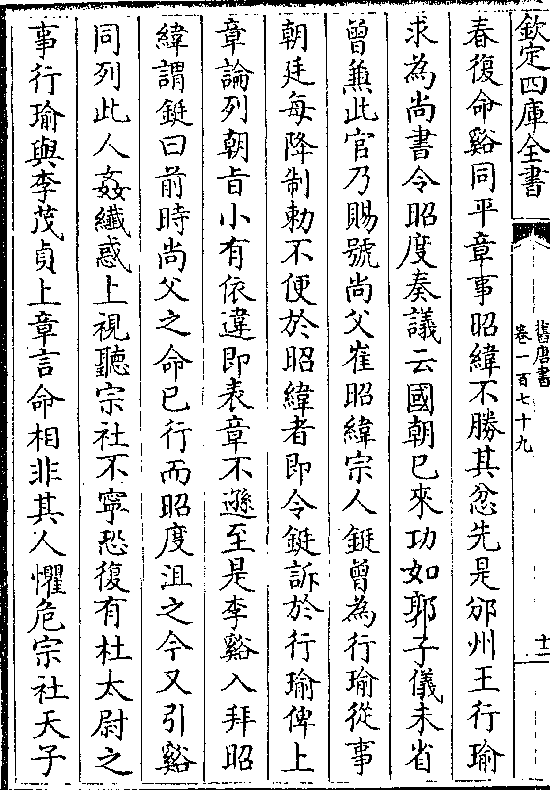 欽定四庫全書
舊唐書
卷一百七十九
十二
春復命谿同平章事昭緯不勝其忿先是邠州王行瑜
求為尚書令昭度奏議云國朝已來功如郭子儀未省
曾兼此官乃賜號尚父崔昭緯宗人鋌曾為行瑜從事
朝廷每降制勅不便於昭緯者即令鋌訴於行瑜俾上
章論列朝旨小有依違即表章不遜至是李谿入拜昭
緯謂鋌曰前時尚父之命已行而昭度沮之今又引谿
同列此人姦纖惑上視聽宗社不寧恐復有杜太尉之
事行瑜與李茂貞上章言命相非其人懼危宗社天子